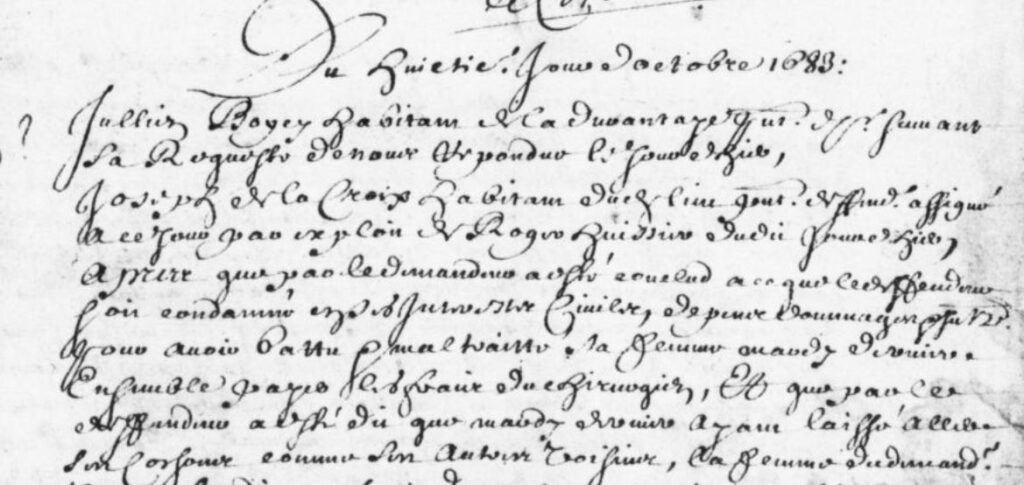 Du huictie. Jour d'octobre 1683:
Jullien Boyer habitant de la durantaye pnt. dr. suivant
Sa Requeste de nous Respondue le Jour d'hier,
Joseph de la Croix habitant dud lieu pnt. deffend. assigné
a ce Jour par exploit de Roger huissier dudit Jour d'hier,
Apres que par le demandeur a esté conclud a ce que le deffendeur
soit condamné en ses Interests Civiles, despens dommages
pour avoir battu & maltraitté sa femme mardy dernier.
Ensemble payer les frais du chirurgien, Et que par le
deffendeur a esté dit que mardy dernier ayant laissé aller
ses cochons comme ses autres voisins, la femme du demand.